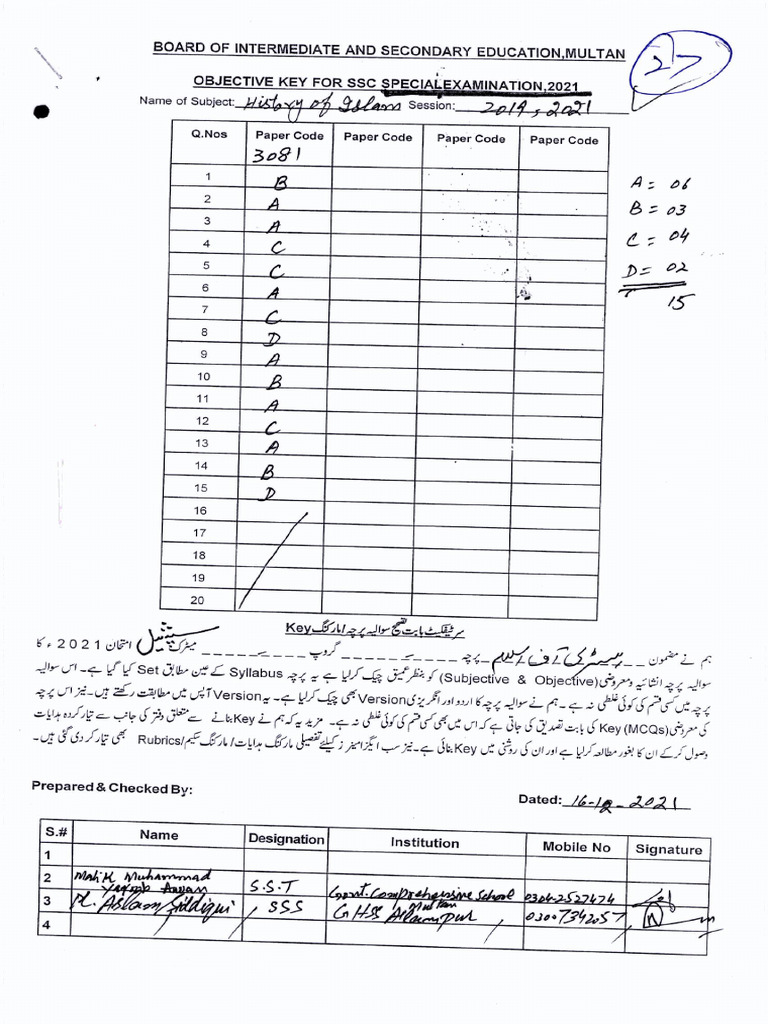 27
BOARD OF INTERMEDIATE AND SECONDARY EDUCATION,MULTAN
OBJECTIVE KEY FOR SSC SPECIALEXAMINATION,2021
Name of Subject: History of Islam Session: 2019, 2021
Q.Nos Paper Code Paper Code Paper Code Paper Code
3081
1 B
2 A
3 A
4 C
5 C
6 A
7 C
8 D
9 A
10 B
11 A
12 C
13 A
14 B
15 D
16
17
18
19
20
A = 06
B = 03
C = 04
D = 02
15
سرٹیفکیٹ بابت تصحیح سوالیہ پرچہ/مارکنگ Key
ہم نے مضمون ہسٹری آف اسلام پرچہ گروپ میٹرک سپیشل امتحان 2021ء کا
سوالیہ پرچہ انشائیہ ومعروضی (Subjective & Objective) کو بنظر عمیق چیک کرلیا ہے یہ پرچہ Syllabus کے عین مطابق Set کیا گیا ہے۔ اس سوالیہ
پرچہ میں کسی قسم کی کوئی غلطی نہ ہے۔ ہم نے سوالیہ پرچہ کا اردو اور انگریزی Version بھی چیک کرلیا ہے۔ یہ Version آپس میں مطابقت رکھتے ہیں۔ نیز اس پرچہ
کی معروضی Key (MCQs) کی بابت تصدیق کی جاتی ہے کہ اس میں بھی کسی قسم کی کوئی غلطی نہ ہے۔ مزید یہ کہ ہم نے Key بنانے سے متعلق دفتر کی جانب سے تیار کردہ ہدایات
وصول کرکے ان کا بغور مطالعہ کرلیا ہے اور ان کی روشنی میں Key بنائی ہے۔ نیز سب ایگزامینرز کیلئے تفصیلی مارکنگ ہدایات/مارکنگ سکیم/Rubrics بھی تیار کر دی گئی ہیں۔
Prepared & Checked By:
Dated: 16-12-2021
S.# Name Designation Institution Mobile No Signature
1
2 Malik Muhammad
Yaqoob Awan S.S.T Govt. Comprehensive School 0304-2527474
Multan
3 M. Aslam Siddiqui SSS GHSS 03007342057
4